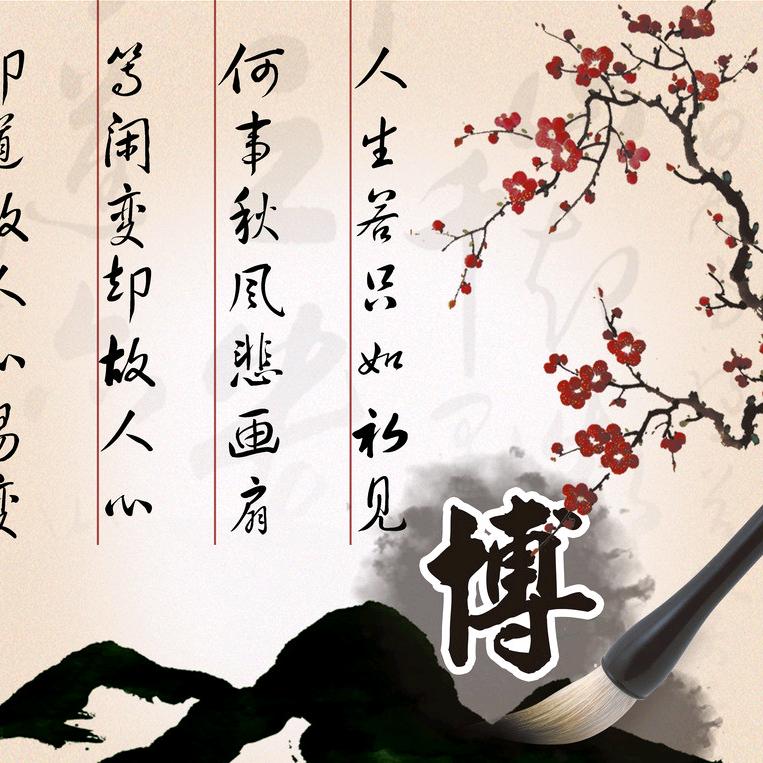 人生若只如初见
何事秋风悲画扇
等闲变却故人心
却道故人心易变
博